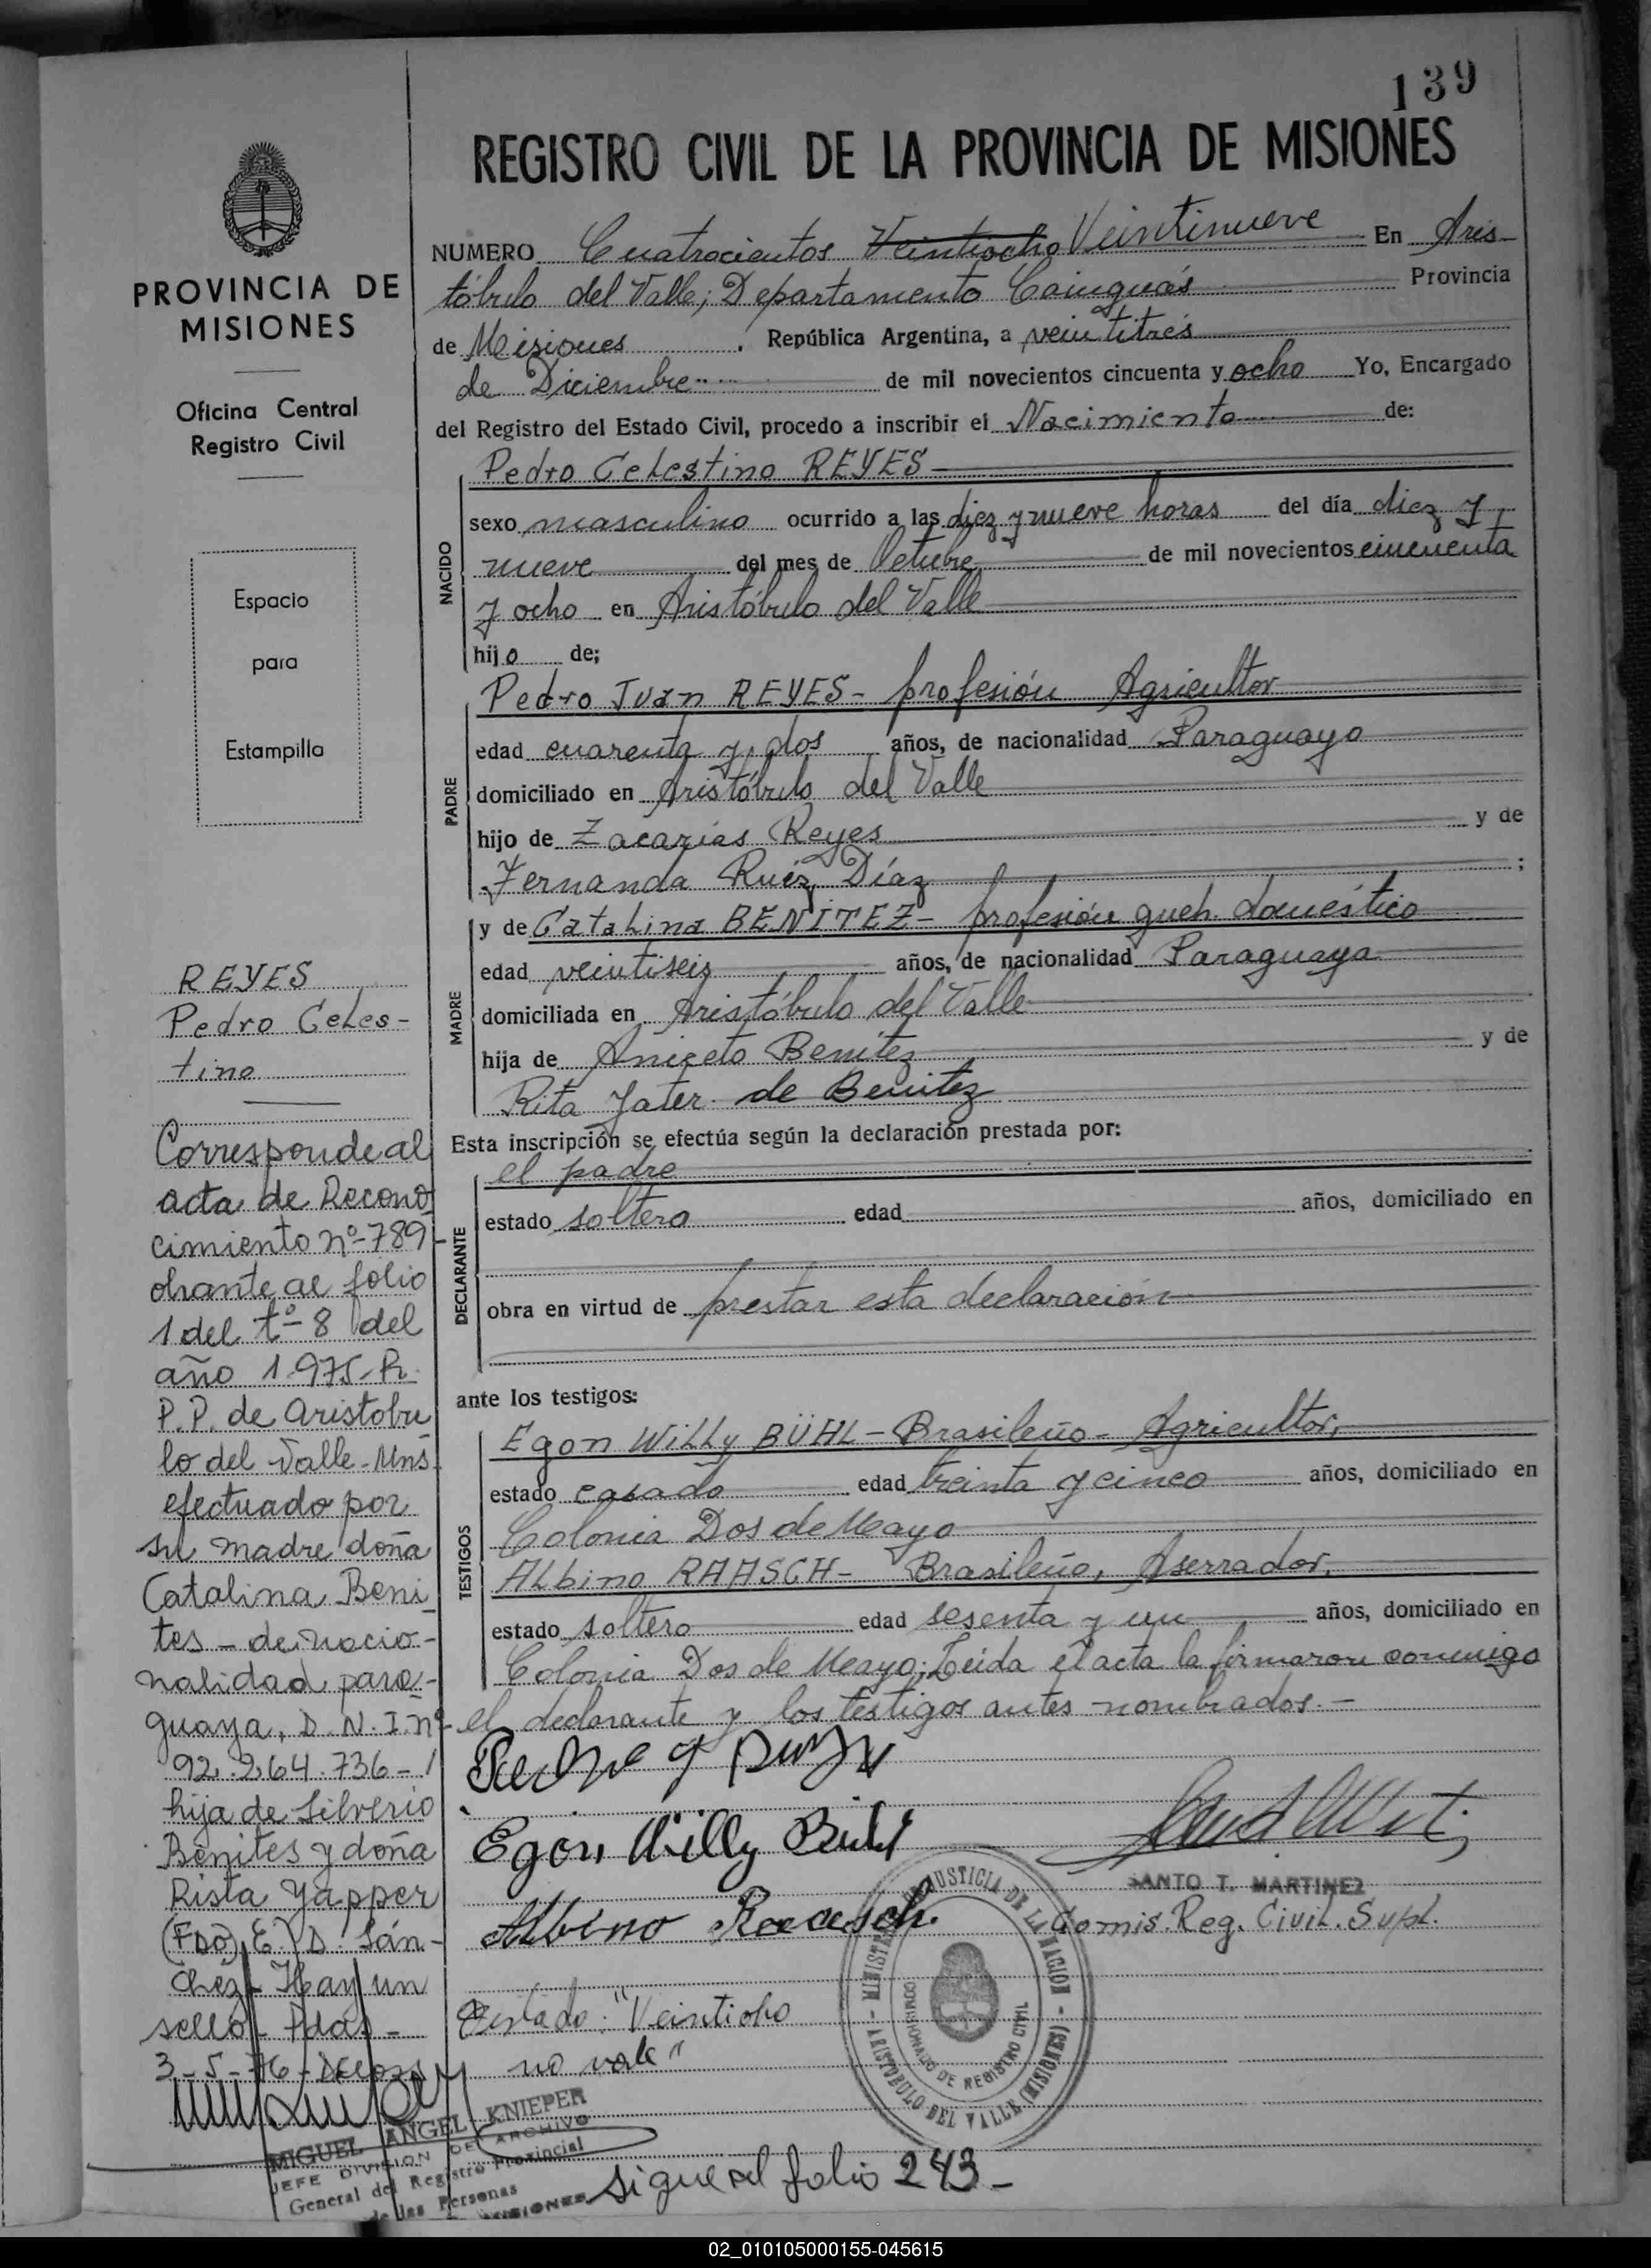 139
REGISTRO CIVIL DE LA PROVINCIA DE MISIONES
PROVINCIA DE
MISIONES
Oficina Central
Registro Civil
Espacio
para
Estampilla
REYES
Pedro Celes-
tino
Corresponde al
acta de Recono
cimiento nº 789-
obrante al folio
1 del tº 8 del
año 1.975-R.
P.P. de Aristobu
lo del Valle-Mns.
efectuado por
su madre doña
Catalina Beni
tes - de nacio-
nalidad para-
guaya, D.N.I. nº
92.264.736-
hija de Silverio
Benites y doña
Rista Yapper
(FDO) E. D. Sán-
chez - Hay un
sello - Pdas -
3-5-76
MIGUEL ANGEL KNIEPER
JEFE DIVISION DE ARCHIVO
General del Registro Provincial
de las Personas
MISIONES
NUMERO Cuatrocientos Veintiocho Veintinueve En Aris-
tóbulo del Valle; Departamento Cainguás Provincia
de Misiones . República Argentina, a veintitrés
de Diciembre de mil novecientos cincuenta y ocho Yo, Encargado
del Registro del Estado Civil, procedo a inscribir el Nacimiento de:
NACIDO
Pedro Celestino REYES
sexo masculino ocurrido a las diez y nueve horas del día diez y
nueve del mes de Octubre de mil novecientos cincuenta
y ocho en Aristóbulo del Valle
hijo de;
PADRE
Pedro Juan REYES- profesión Agricultor
edad cuarenta y dos años, de nacionalidad Paraguayo
domiciliado en Aristóbulo del Valle
hijo de Zacarías Reyes y de
Fernanda Ruiz Díaz ;
MADRE
y de Catalina BENITEZ- profesión queh. doméstico
edad veintiseiz años, de nacionalidad Paraguaya
domiciliada en Aristóbulo del Valle
hija de Aniceto Benítez y de
Rita Yater de Benitez
Esta inscripción se efectúa según la declaración prestada por:
DECLARANTE
el padre
estado soltero edad años, domiciliado en
obra en virtud de prestar esta declaración
ante los testigos:
TESTIGOS
Egon Willy BÜHL - Brasileño - Agricultor,
estado casado edad treinta y cinco años, domiciliado en
Colonia Dos de Mayo
Albino RAASCH- Brasileño, Aserrador,
estado soltero edad sesenta y un años, domiciliado en
Colonia Dos de Mayo; Leida el acta la firmaron conmigo
el declarante y los testigos antes nombrados.-
Egon Willy Bühl
Albino Raasch
SANTO T. MARTINEZ
Comis. Reg. Civil. Supl.
MINISTERIO DE JUSTICIA DE LA NACION
COMISIONADO DE REGISTRO CIVIL
ARISTOBULO DEL VALLE (MISIONES)
Testado: "Veintiocho
no vale"
Sigue al folio 243-
02_010105000155-045615